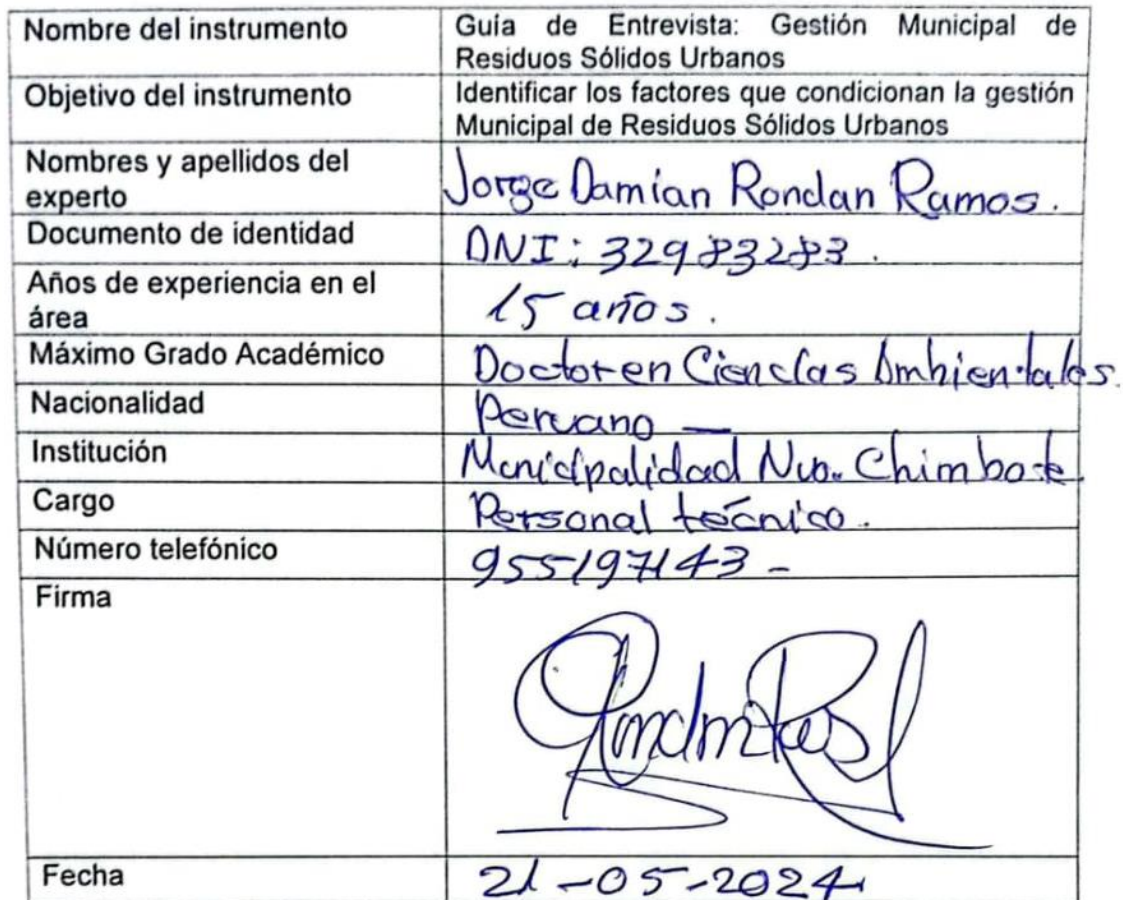 Nombre del instrumento
Guía de Entrevista: Gestión Municipal de
Residuos Sólidos Urbanos
Objetivo del instrumento
Identificar los factores que condicionan la gestión
Municipal de Residuos Sólidos Urbanos
Nombres y apellidos del
experto
Jorge Damian Rondan Ramos.
Documento de identidad
DNI: 32983283.
Años de experiencia en el
área
15 años.
Máximo Grado Académico
Doctor en Ciencias Ambientales.
Nacionalidad
Peruano —
Institución
Municipalidad Nvo. Chimbote
Cargo
Personal técnico.
Número telefónico
955197143 -
Firma
Fecha
21-05-2024